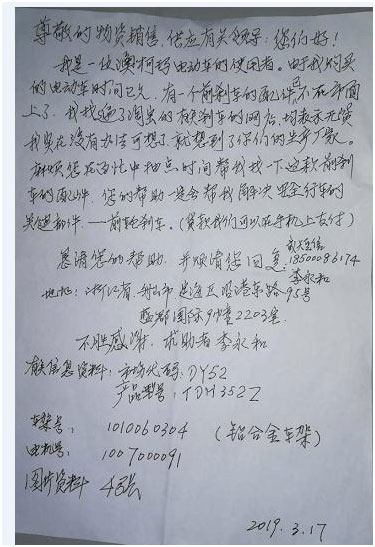 尊敬的物资销售、供应有关领导：您们好！
我是一位澳柯玛电动车的使用者。由于我购买
的电动车时间已久，有一个前刹车的配件已不在市面
上了，我找遍了淘宝的有刹车的网店，均表示无货
我实在没有办法可想了，就想到了你们的生产厂家。
麻烦您在百忙中抽点时间帮我找一下这款前刹
车的配件，您的帮助一定会帮我解决安全行车的
关键部件——前轮刹车。（货款我们可以在手机上支付）
恳请您的帮助，并烦请您回复
18500086174
李永和
地址：浙江省舟山市定海区沿港东路95号
国际9幢2203室
不胜感谢，求助者李永和
有关信息资料：市场代码：DY52
产品型号：TDH352Z
车架号：1010060304（铝合金车架）
电机号：1007000091
图片资料 4张
2019.3.17